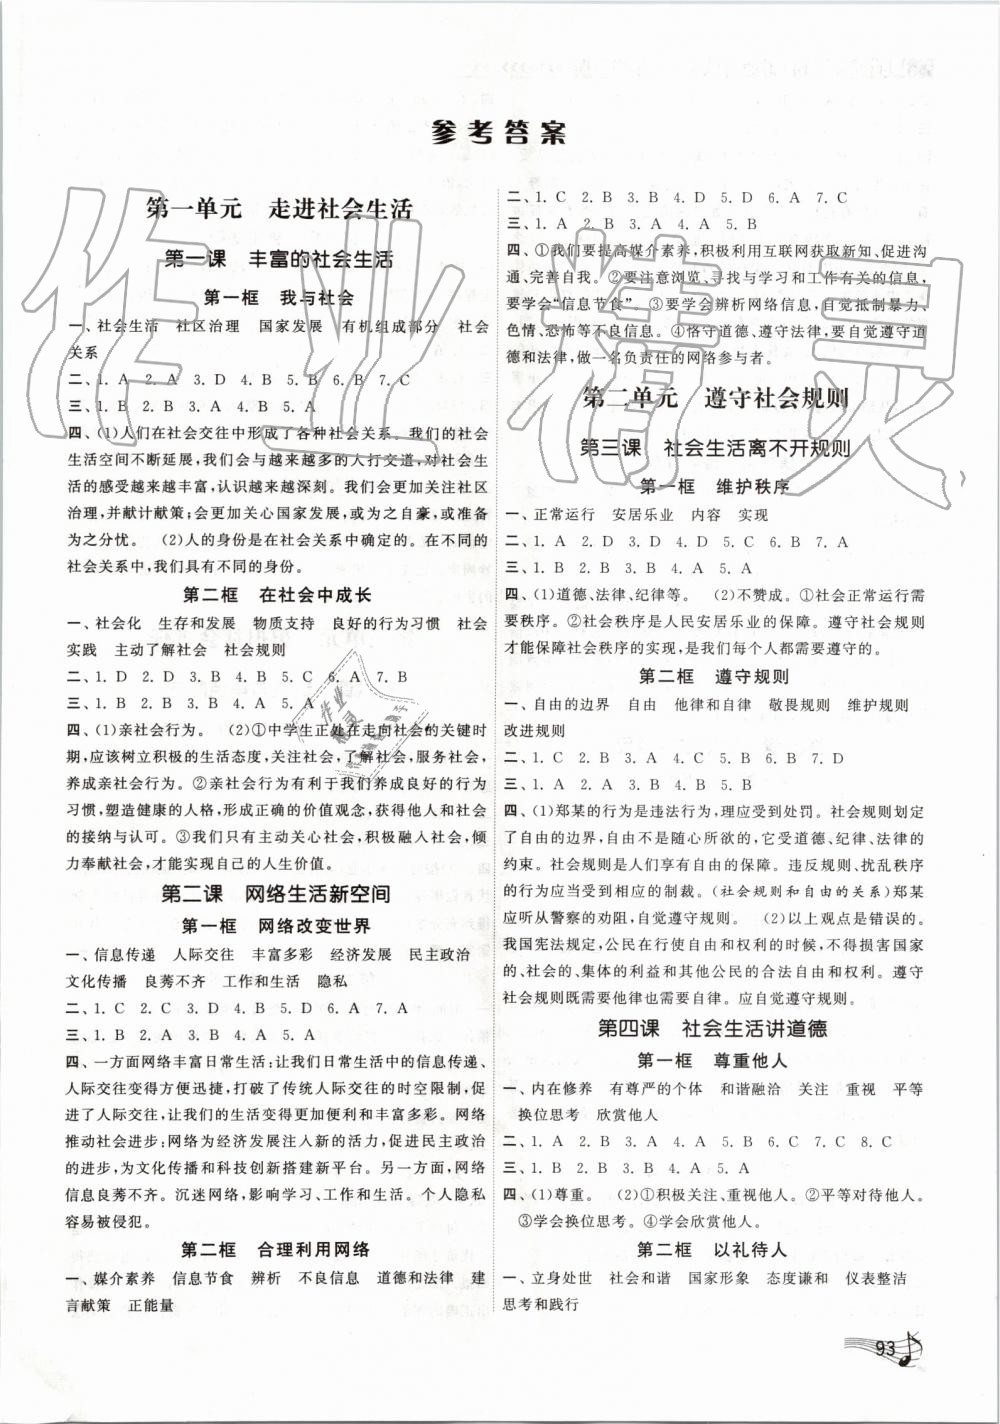 参考答案
第一单元 走进社会生活
第一课 丰富的社会生活
第一框 我与社会
一、社会生活 社区治理 国家发展 有机组成部分 社会
关系
二、1. A 2. A 3. D 4. D 5. B 6. B 7. C
三、1. B 2. B 3. A 4. B 5. A
四、(1)人们在社会交往中形成了各种社会关系。我们的社会
生活空间不断延展,我们会与越来越多的人打交道,对社会生
活的感受越来越丰富,认识越来越深刻。我们会更加关注社区
治理,并献计献策;会更加关心国家发展,或为之自豪,或准备
为之分忧。 (2)人的身份是在社会关系中确定的。在不同的
社会关系中,我们具有不同的身份。
第二框 在社会中成长
一、社会化 生存和发展 物质支持 良好的行为习惯 社会
实践 主动了解社会 社会规则
二、1. D 2. D 3. A 4. D 5. A 6. A 7. B
三、1. B 2. B 3. A 4. B 5. A
四、(1)亲社会行为。 (2)①中学生正处在走向社会的关键时
期,应该树立积极的生活态度,关注社会,了解社会,服务社会,
养成亲社会行为。②亲社会行为有利于我们养成良好的行为
习惯,塑造健康的人格,形成正确的价值观念,获得他人和社会
的接纳与认可。③我们只有主动关心社会,积极融入社会,倾
力奉献社会,才能实现自己的人生价值。
第二课 网络生活新空间
第一框 网络改变世界
一、信息传递 人际交往 丰富多彩 经济发展 民主政治
文化传播 良莠不齐 工作和生活 隐私
二、1. C 2. C 3. D 4. B 5. D 6. A 7. A
三、1. B 2. A 3. B 4. A 5. A
四、一方面网络丰富日常生活:让我们日常生活中的信息传递、
人际交往变得方便迅捷,打破了传统人际交往的时空限制,促
进了人际交往,让我们的生活变得更加便利和丰富多彩。网络
推动社会进步:网络为经济发展注入新的活力,促进民主政治
的进步,为文化传播和科技创新搭建新平台。另一方面,网络
信息良莠不齐。沉迷网络,影响学习、工作和生活。个人隐私
容易被侵犯。
第二框 合理利用网络
一、媒介素养 信息节食 辨析 不良信息 道德和法律 建
言献策 正能量
二、1. C 2. B 3. B 4. D 5. D 6. A 7. C
三、1. A 2. B 3. A 4. A 5. B
四、①我们要提高媒介素养,积极利用互联网获取新知、促进沟
通、完善自我。②要注意浏览、寻找与学习和工作有关的信息,
要学会“信息节食”。③要学会辨析网络信息,自觉抵制暴力、
色情、恐怖等不良信息。④恪守道德、遵守法律,要自觉遵守道
德和法律,做一名负责任的网络参与者。
第二单元 遵守社会规则
第三课 社会生活离不开规则
第一框 维护秩序
一、正常运行 安居乐业 内容 实现
二、1. A 2. D 3. D 4. B 5. C 6. B 7. A
三、1. B 2. B 3. A 4. A 5. A
四、(1)道德、法律、纪律等。 (2)不赞成。①社会正常运行需
要秩序。②社会秩序是人民安居乐业的保障。遵守社会规则
才能保障社会秩序的实现,是我们每个人都要做到的。
第二框 遵守规则
一、自由的边界 自由 他律和自律 敬畏规则 维护规则
改进规则
二、1. C 2. C 3. D 4. B 5. B 6. B 7. D
三、1. A 2. A 3. B 4. A 5. A
四、(1)郑某的行为是违法行为,理应受到处罚。社会规则划定
了自由的边界,自由不是随心所欲的,它受道德、纪律、法律的
约束。社会规则是人们享有自由的保障。违反规则、扰乱秩序
的行为应当受到相应的制裁。(社会规则和自由的关系)郑某
应听从警察的劝阻,自觉遵守规则。 (2)以上观点是错误的。
我国宪法规定,公民在行使自由和权利的时候,不得损害国家
的、社会的、集体的利益和其他公民的合法自由和权利。遵守
社会规则既需要他律也需要自律。应自觉遵守社会规则。
第四课 社会生活讲道德
第一框 尊重他人
一、内在修养 有尊严的个体 和谐融洽 关注 重视 平等
换位思考 欣赏他人
二、1. A 2. A 3. B 4. C 5. B 6. C 7. C 8. C
三、1. B 2. A 3. A 4. A 5. A
四、(1)尊重。 (2)①积极关注、重视他人。②平等对待他人。
③学会换位思考。④学会欣赏他人。
第二框 以礼待人
一、立身处世 社会和谐 国家形象 态度谦和 仪表整洁
思考和践行
93
作业精灵